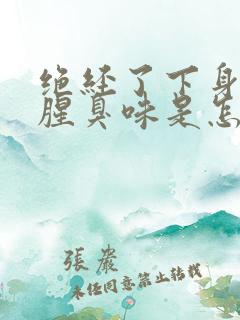 绝经了下身
腥臭味是怎
張嚴
未经同意禁止转载